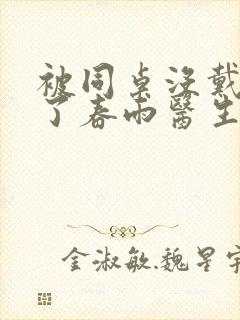 被同桌没戴
了春雨醫生
金淑敏.魏星宇